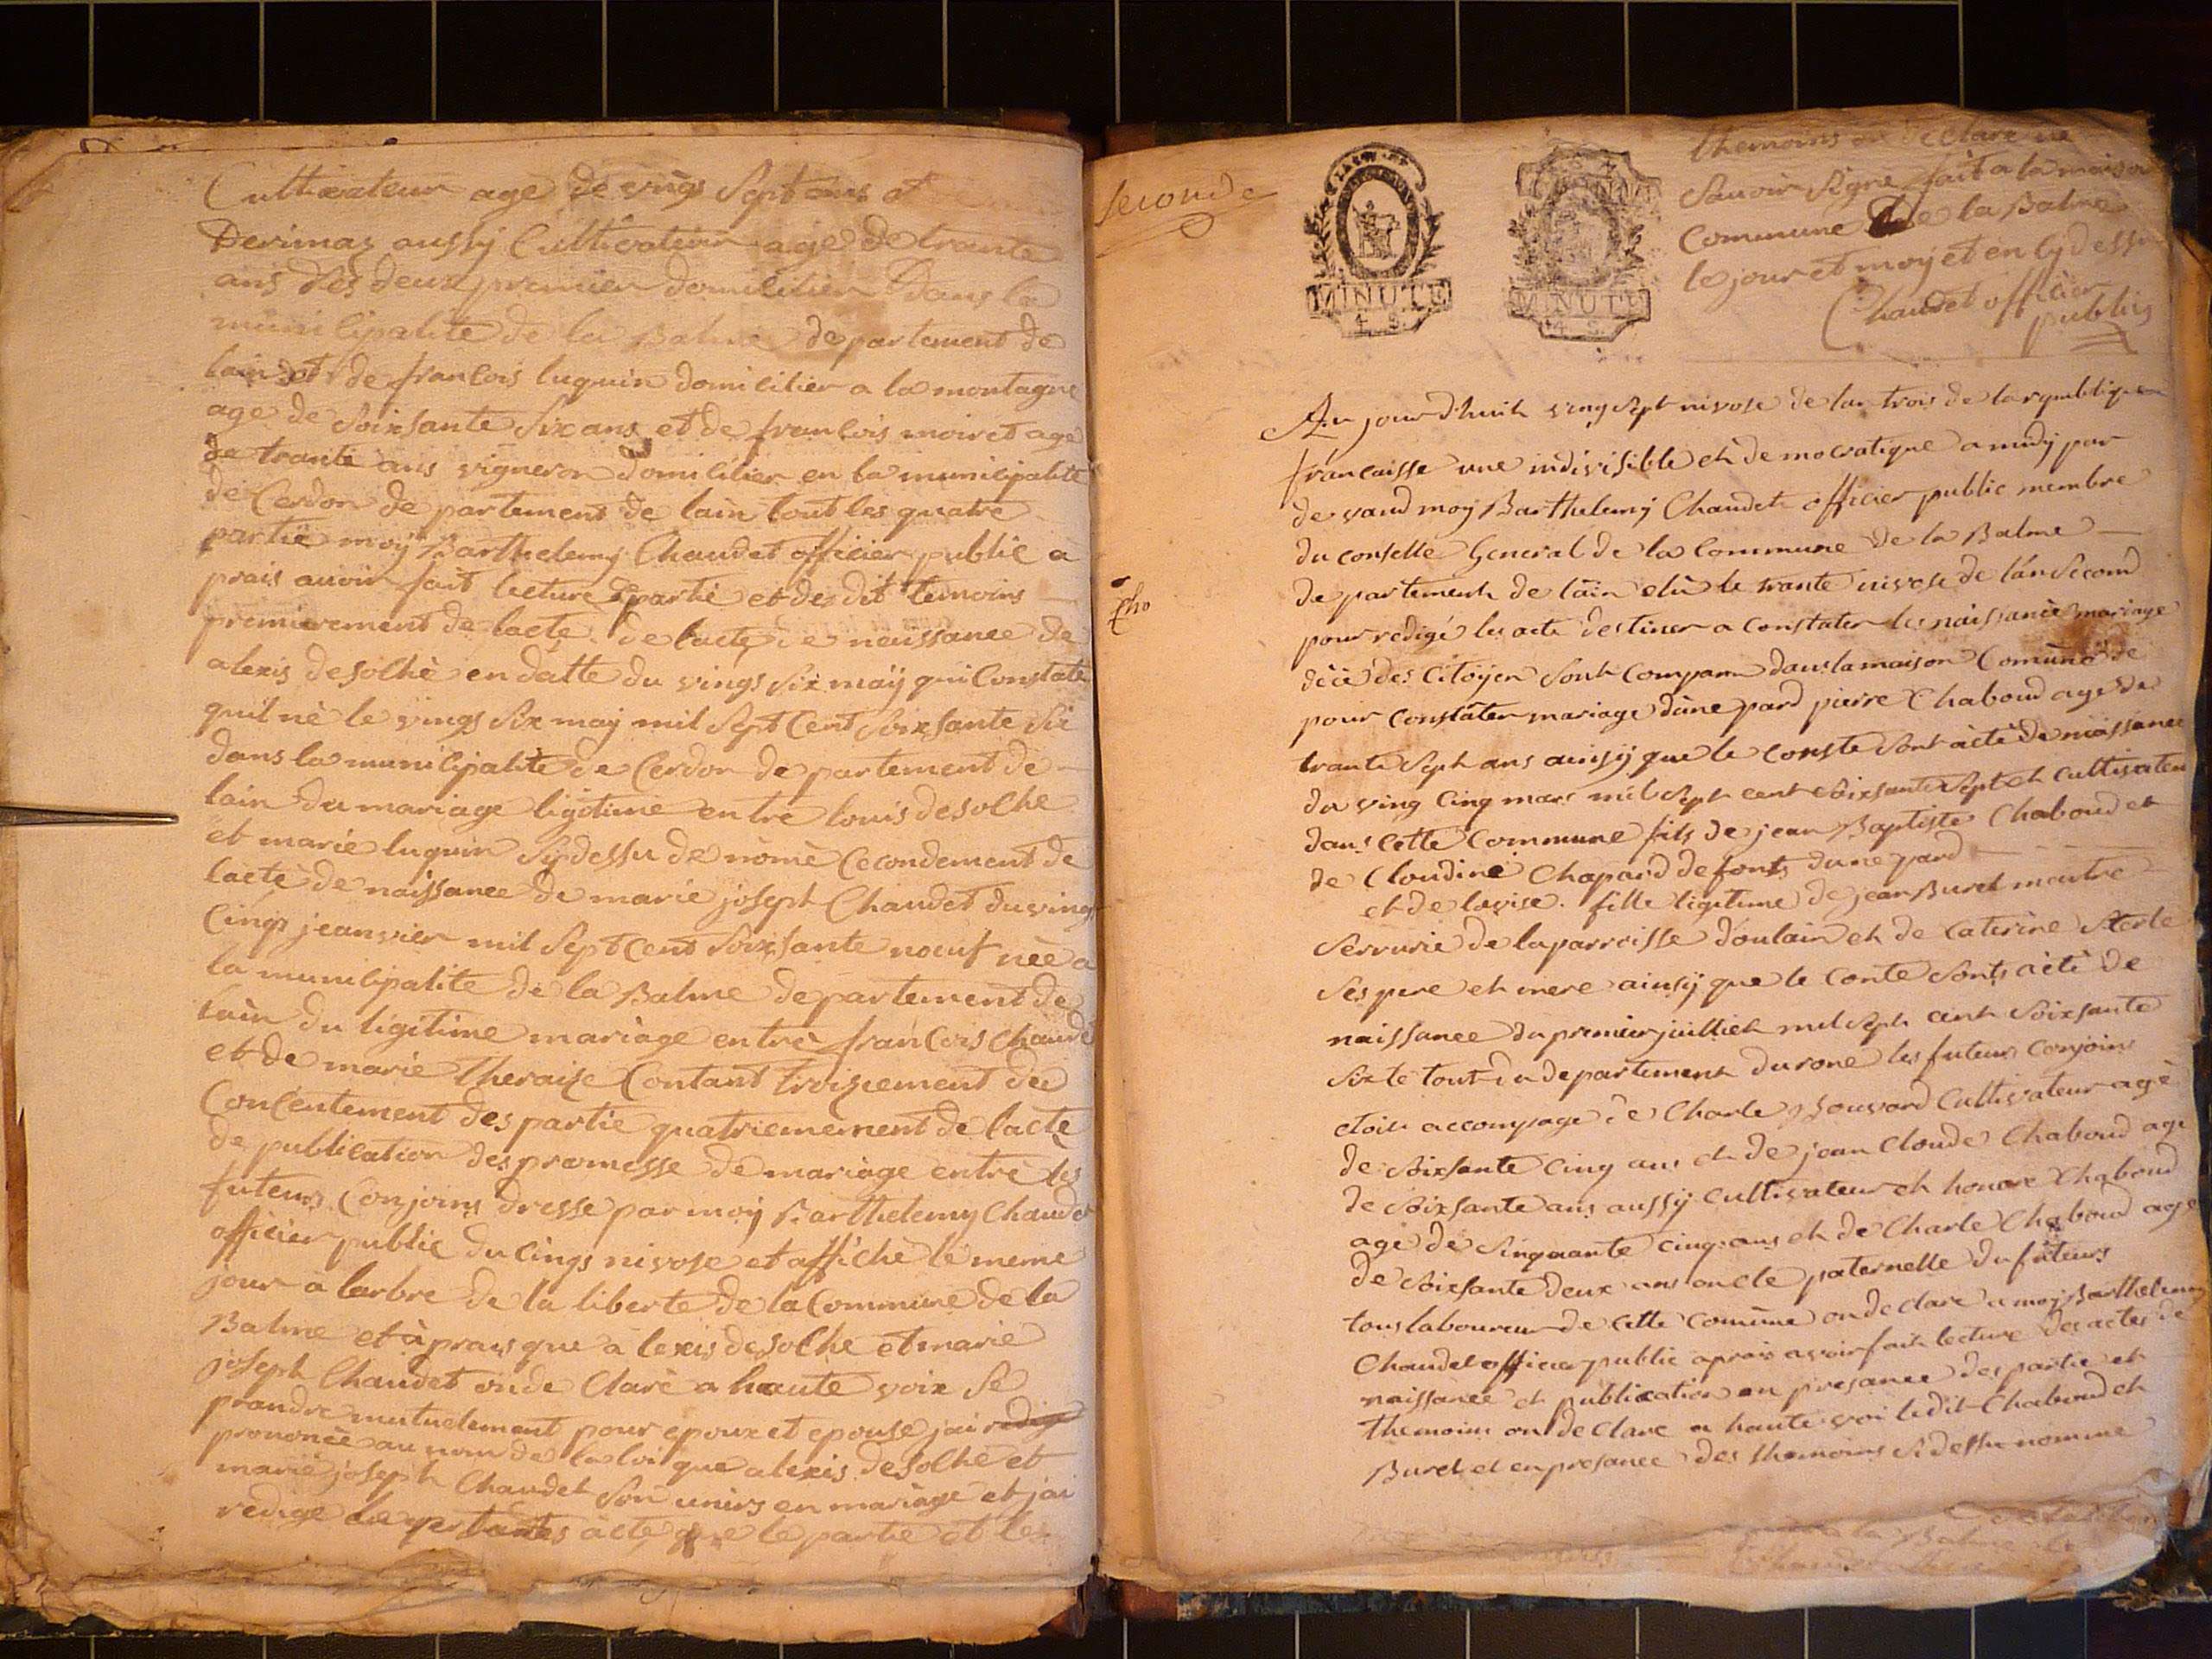 Cultivateur age de vings Sept ans et
Derimaz aussy Cultivateur age de trante
ans des deux premier domicilier Dans la
municipalité de la Balme departement de
lain et de francois luquin domicilier a la montagne
age de Soixsante Six ans et de francois moiret age
de trante ans vigneron domicilier en la municipalité
de Cerdon de partement de lain tout les quatre
partie moÿ Barthelemy Chaudet officier public a
prais avoir fait lecture partie et des dit temoins
premierement de lacte de lacte de naissance de
alexis desolhe en datte du vings Six maÿ qui Constate
quil nè le vings Six maÿ mil Sept Cent Soixsante Six
dans la municipalitè de Cerdon de partement de
lain du mariage ligitime entre louis desolhe
et marie luquin Sÿ dessu de nomè Cecondement de
lactè de naissance de marie joseph Chaudet du vings
Cings jeanvier mil Sept Cent Soixsante noeuf nèe a
la municipalite de la Balme departement de
lain du ligitime mariage entrè francois Chaudet
et de marie theraise Contant troisiement du
Concentement des partie quatriemement de lacte
de publication des promesse de mariage entre les
futeurs Conjoins dresse par moÿ Barthelemy Chaudet
officier public du Cings nivose et affichè le meme
jour a larbre de la liberte de la Commune de la
Balme et à prais que a lexis desolhe et marie
joseph Chaudet onde Clarè a haute voix Se
prandre mutuelement pour epoux et epouse jai redige
prononcèe au nom de la loi que alexis desolhe et
marie joseph Chaudet Son unirs en mariage et jai
redige le acte que le partie et les
seconde
MINUTE
4. S.
MINUTE
4. S.
themoins on de Clare ne
Savoir Signe fait a la maison
Commune de la Balme
le jour et moÿ et en Cy dessu
Chaudet officier
public
Au jour d'huit ving sept nivose de lan trois de la republique
francaisse une indivisible et democratique a midÿ par
de vand moÿ Barthelemy Chaudet officier public membre
du conselle General de la Commune de la Balme
de partement de lain elù le trante nivose de lan Second
pour redigé les acte destiner a Constater les naissance mariage
dècè des Citöyen Sont Comparu dans la maison Comùne de
pour constater mariage dùne pard pierre Chaboud age de
trante Sept ans ainsÿ que le conste Sont àctè de naissance
du ving Cinq mars mil Sept cent Soixsante Sept et Cultivateu
dans Cette Commune fils de jean Baptiste Chaboud et
de Cloudine Chapard defonts dune pard
et de fille ligitime de jean Buret
Serrurie de la parroisse doulain et de Caterine
Ses pere et mere ainsÿ que le Conte Sonts àctè de
naissance du premier juilliet mil Sept cent Soixsante
Six te tout du departement du rone les futeurs Conjoins
etoit accompage de Charle Bouvard Cultivateur agè
de Soixsante Cinq ans et de jean Cloude Chaboud age
de Soixsante ans aussÿ Cultivateur et honore Chaboud
age de Sinquante Cinq ans et de Charle Chaboud age
de Soixsante deux ans oncle paternelle du futeurs
tous laboureur de Cette Comùne onde clare a moÿ Barthelemy
Chaudet officier public aprais avoir fait lecture des actes de
naissance et publication en presance des partie et
themoins on de Clare a haute voi ledit Chaboud et
Buret et en presance des themoins Si dessu nomme